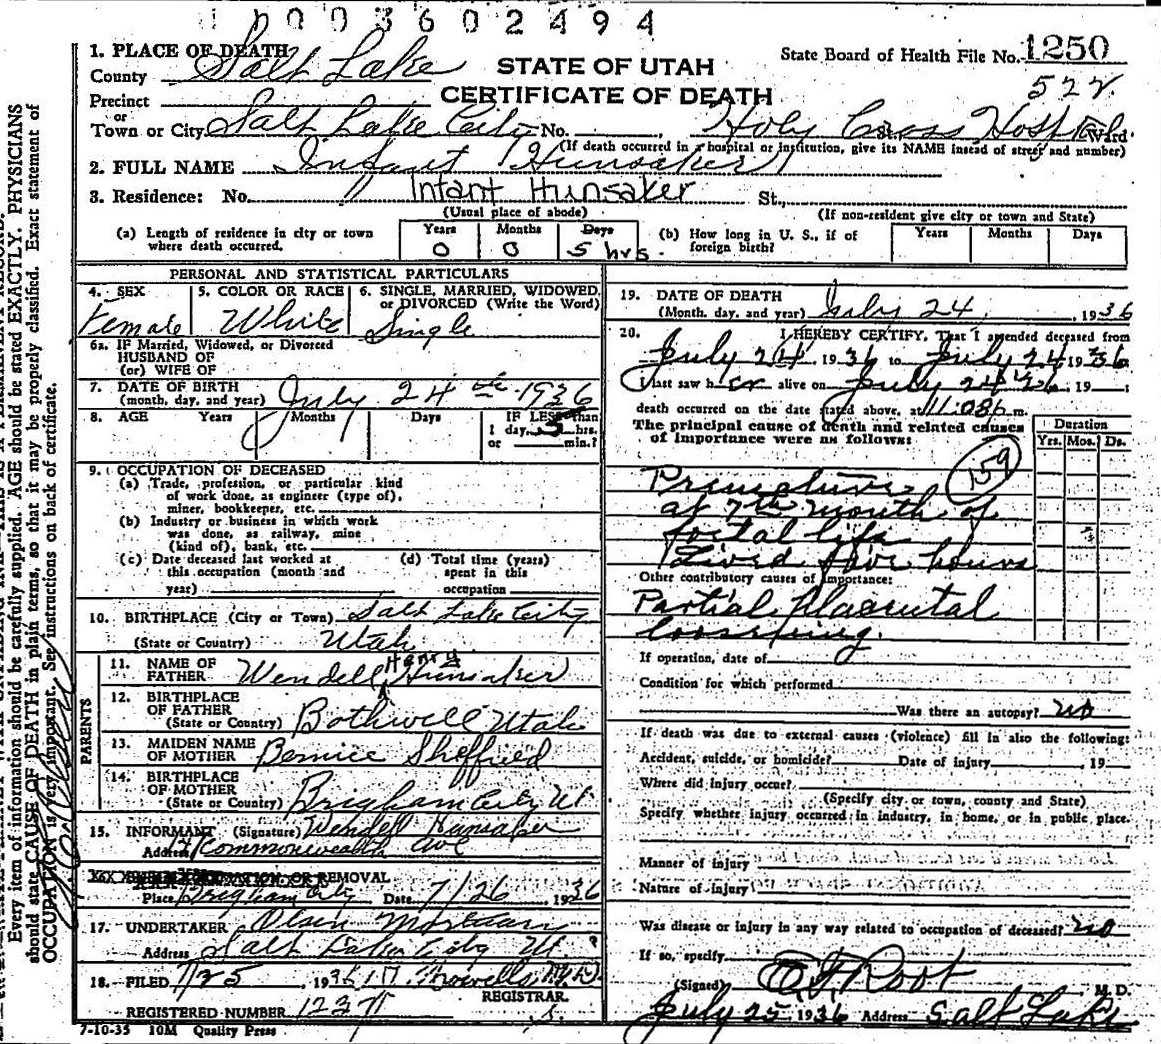 1003602494
1. PLACE OF DEATH
County Salt Lake
STATE OF UTAH
State Board of Health File No. 1250
CERTIFICATE OF DEATH
522
Precinct
or
Town or City Salt Lake City No. , Holy Cross Hospital St. Ward
(If death occurred in a hospital or institution, give its NAME instead of street and number)
2. FULL NAME Infant Hunsaker
3. Residence: No. Infant Hunsaker St.,
(Usual place of abode)
(If non-resident give city or town and State)
(a) Length of residence in city or town where death occurred.
Years Months Days
0 0 5 hrs.
(b) How long in U. S., if of foreign birth?
Years Months Days
PERSONAL AND STATISTICAL PARTICULARS
4. SEX
Female
5. COLOR OR RACE
White
6. SINGLE, MARRIED, WIDOWED, or DIVORCED (Write the Word)
Single
6a. IF Married, Widowed, or Divorced
HUSBAND OF
(or) WIFE OF
7. DATE OF BIRTH
(month, day, and year) July 24th 1936
8. AGE Years Months Days IF LESS than
1 day, 5 hrs.
or min.?
9. OCCUPATION OF DECEASED
(a) Trade, profession, or particular kind
of work done, as engineer (type of),
miner, bookkeeper, etc.
(b) Industry or business in which work
was done, as railway, mine
(kind of), bank, etc.
(c) Date deceased last worked at
this occupation (month and
year)
(d) Total time (years)
spent in this
occupation
10. BIRTHPLACE (City or Town) Salt Lake City
(State or Country) Utah
PARENTS
11. NAME OF FATHER Wendell Henry Hunsaker
12. BIRTHPLACE OF FATHER
(State or Country) Bothwell Utah
13. MAIDEN NAME OF MOTHER Bernice Sheffield
14. BIRTHPLACE OF MOTHER
(State or Country) Brigham City Ut
15. INFORMANT (Signature) Wendell Hunsaker
Address Commonwealth Ave
OR REMOVAL
Place Brigham City Date 7/26, 1936
17. UNDERTAKER Olsen Mortuary
Address Salt Lake City Ut.
18. FILED 7/25, 1936 M.D.
REGISTRAR.
REGISTERED NUMBER 1237
7-10-35 10M Quality Press
19. DATE OF DEATH
(Month, day, and year) July 24, 1936
20. I HEREBY CERTIFY, That I attended deceased from
July 24, 1936 to July 24 1936
I last saw her alive on July 24 '36, 19 ;
death occurred on the date stated above, at 11:08 p. m.
The principal cause of death and related causes
of importance were as follows:
Duration
Yrs. Mos. Ds.
159
Premature
at 7th month of
foetal life
Lived five hours
Other contributory causes of importance:
Partial placental
loosening.
If operation, date of
Condition for which performed
Was there an autopsy? no
If death was due to external causes (violence) fill in also the following:
Accident, suicide, or homicide? Date of injury 19
Where did injury occur?
(Specify city or town, county and State)
Specify whether injury occurred in industry, in home, or in public place.
Manner of injury
Nature of injury
Was disease or injury in any way related to occupation of deceased? no
If so, specify
(Signed) Root M. D.
July 25, 1936 Address Salt Lake
Every item of information should be carefully supplied. AGE should be stated EXACTLY. PHYSICIANS
should state CAUSE OF DEATH in plain terms, so that it may be properly classified. Exact statement of
OCCUPATION is very important. See instructions on back of certificate.